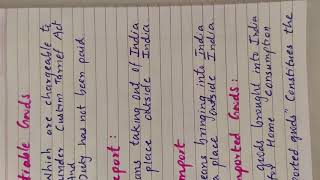 tiable Goods
which are chargeable to
under Custom Tarrif Act
and
Duty has not been paid
export :
ons taking out of India
place outside India
mport
eans bringing into India
a place outside India
ported Goods:
goods brought into India
for Home Consumption
ported goods" Constitutes the